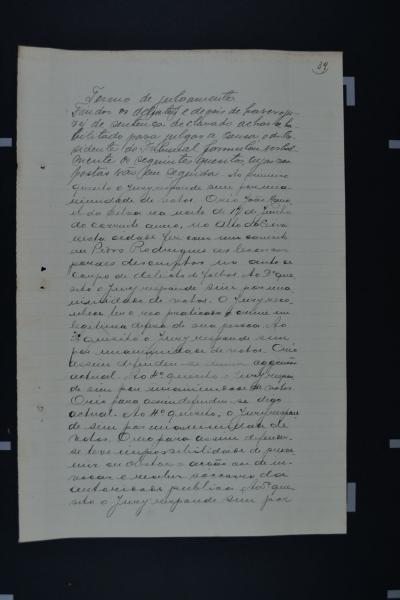 39
Termo de julgamento
Lendos os debates e depois de haver o ju-
ry de sentença declarado achar-se ha-
bilitado para julgar a causa, o dr. Pre-
sidente do Tribunal formulou verbal-
mente os seguintes quesitos, cujas res-
postas vão em seguida. Ao primeiro
quesito o Jury responde sim por una-
nimidade de votos. O reo João Mano-
el da Silva na noite de 17 de Junho
do corrente anno, no Alto da
nesta cidade fez com uma
em Pedro Rodrigues as lesoens
descriptas no auto de
corpo de delicto de folhas. Ao 2º que-
sito o Jury responde sim por una-
nimidade de votos. O Jury reco-
nhece ter o reo praticado o crime em
legitima defesa de sua pessoa. Ao
3º quesito o Jury responde sim
por unanimidade de votos. O reo
assim defendeu-se de aggressão
actual. Ao 4º quesito o Jury respon-
de sim por unanimidade de votos.
O reo para assim defender-se digo
actual. Ao 4º quesito, o Jury respon-
de sim por unanimidade de
votos. O reo para assim defender-
se teve impossibilidade de preve-
nir ou obstar a acção ou de in-
vocar e receber soccorro da
autoridade publica. Ao 5º que-
sito o Jury responde sim por